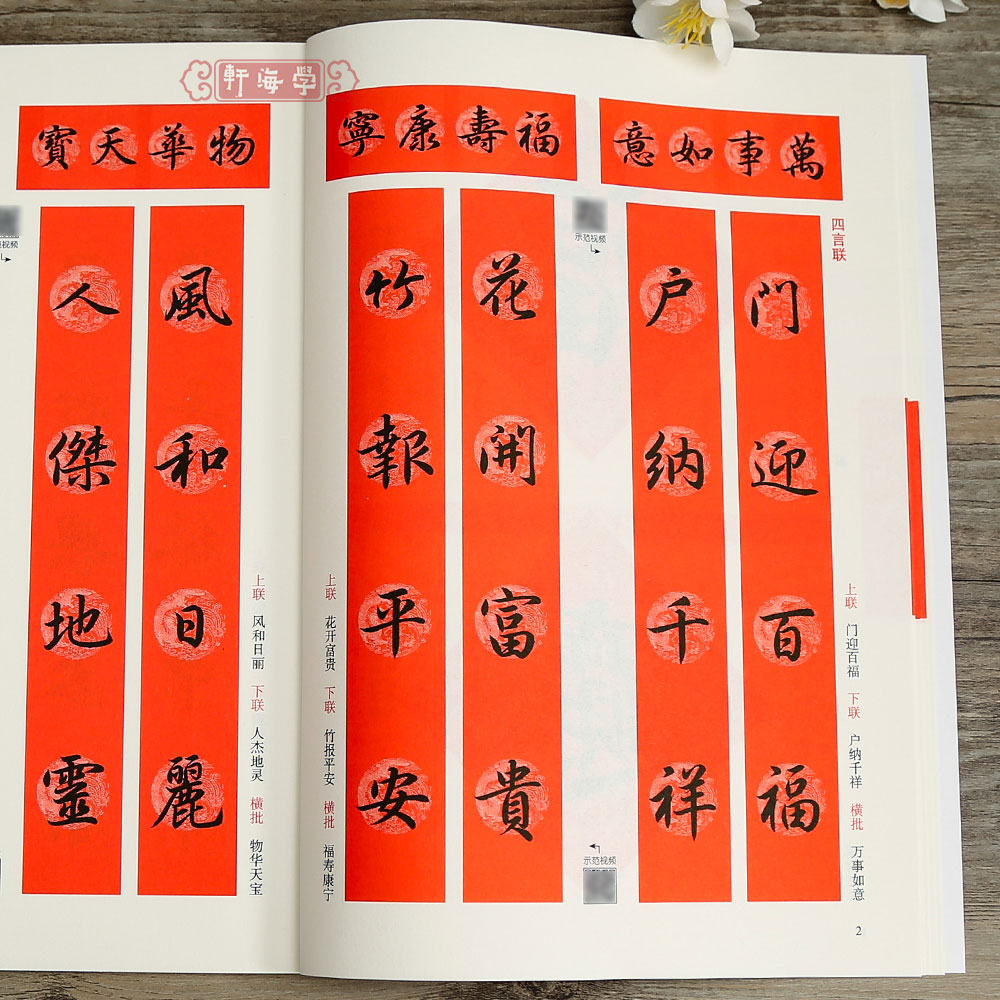 軒海学
四言联
萬事如意
門迎百福
户纳千祥
上联 门迎百福 下联 户纳千祥 横批 万事如意
示范视频
示范视频
福壽康寧
花開富貴
竹報平安
上联 花开富贵 下联 竹报平安 横批 福寿康宁
物華天寶
風和日麗
人傑地靈
上联 风和日丽 下联 人杰地灵 横批 物华天宝
范视频
2